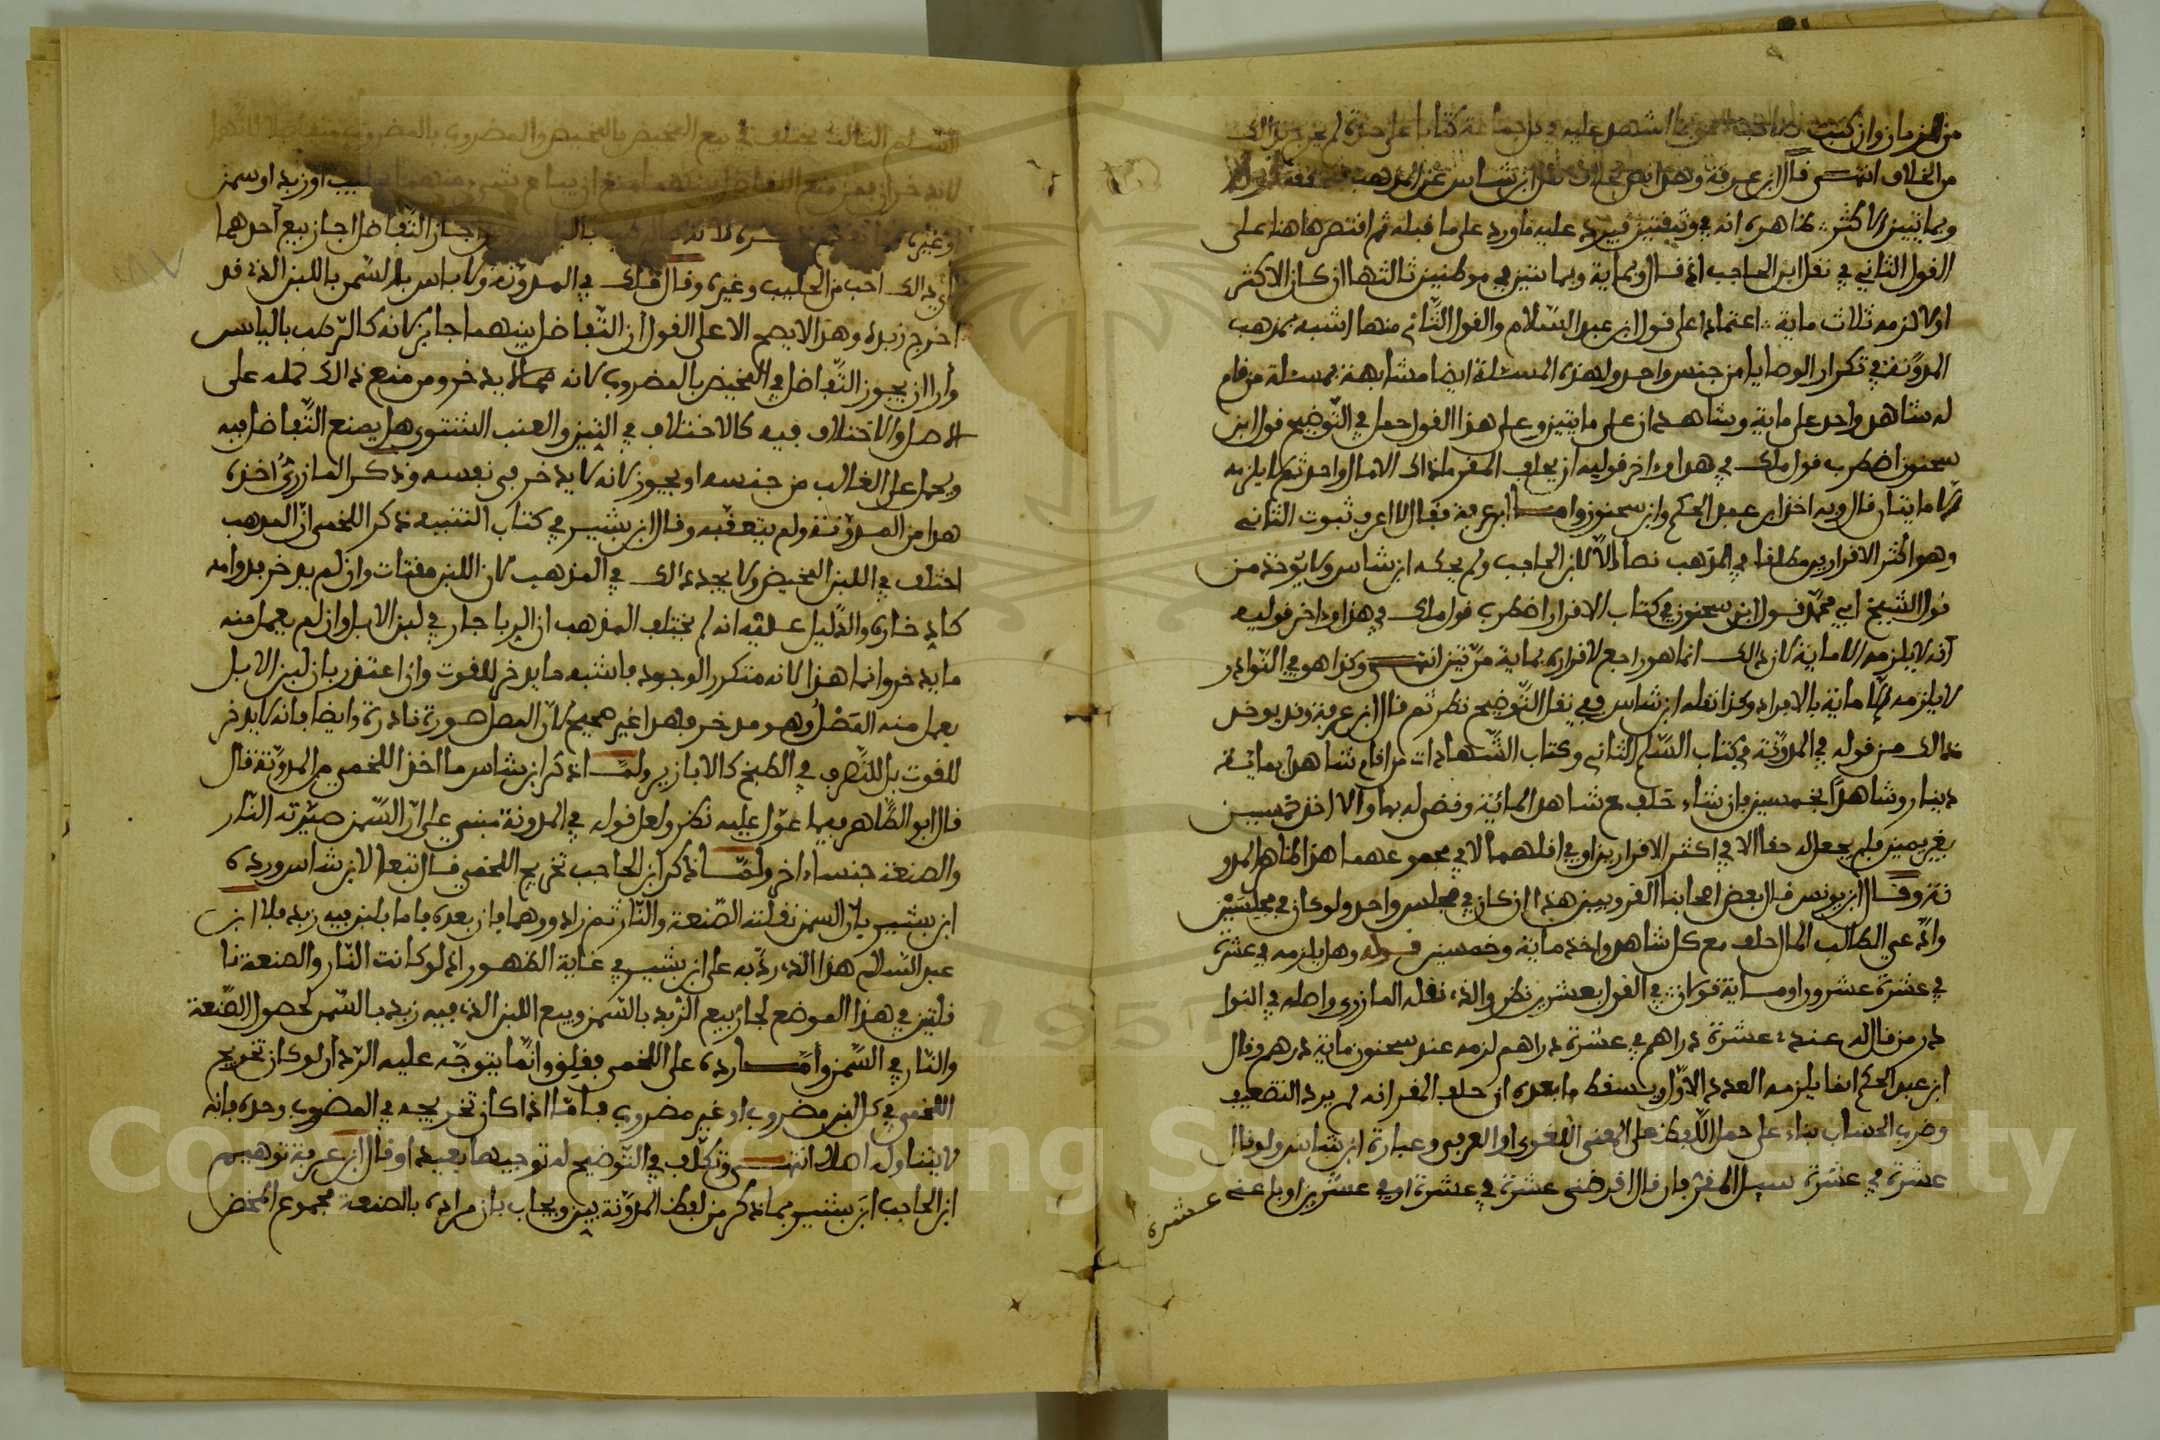 وبمايتين الاكثر ظاهره انه في وثيقتين فيرد عليه ما ورد على ما قبله ثم اقتصر هاهنا على
القول الثاني في نقل ابن الحاجب اذ قال وبماية وبمايتين في موطنين ثالثها ان كان الاكثر
اولا لزمه ثلاث ماية اعتمادا على قول ابن عبد السلام والقول الثاني منها اشبه بمذهب
المدونة في تكرار الوصايا من جنس واحد ولهذه المسئلة ايضا مشابهة بمسئلة من قام
له شاهد واحد على ماية وشاهدان على مايتين وعلى هذا القول حمل في التوضيح قول ابن
سحنون اضطرب قول ملك في هذا واخر قوليه ان يحلف المقر ما ذاك الا مال واحد ثم لا يلزمه
الا مايتان قال وبه اخذ ابن عبد الحكم وابن سحنون واما ابن عرفة فقال لا اعرف ثبوت الثاني
وهو اكثر الاقرارين مطلقا في المذهب نصا الا لابن الحاجب ولم يحكه ابن شاس ولا يؤخذ من
قول الشيخ ابي محمد قول ابن سحنون في كتاب الاقرار اضطرب قول ملك في هذا واخر قوليه
انه لا يلزمه الا ماية لان ذالك انما هو راجع لاقراره بماية مرتين انتهى وكذا هو في النوادر
لا يلزمه الا ماية بالافراد وكذا نقله ابن شاس ففي نقل التوضيح نظر ثم قال ابن عرفة وقد يوخذ
ذالك من قوله في المدونة في كتاب السلم الثاني وكتاب الشهادات من اقام شاهدا بمائة
دينار وشاهدا بخمسين فان شاء حلف مع شاهد المائة وقضي له بها والا اخذ خمسين
بغير يمين فلم يجعل له حقا الا في اكثر الاقرارين او في اقلهما لا في مجموعهما هذا ظاهر المدو
نة وقال ابن يونس قال بعض اصحابنا القرويين هذا ان كان في مجلس واحد ولو كان في مجلسين
وادعى الطالب المال حلف مع كل شاهد واخذ ماية وخمسين قوله وهل يلزمه في عشرة
في عشرة عشرون او ماية قولان في القول بعشرين نظر والذي نقله المازري واصله في النوا
در من قال له عندي عشرة دراهم في عشرة دراهم لزمه عند سحنون ماية درهم وقال
ابن عبد الحكم انما يلزمه العدد الاول ويسقط ما بعده ان حلف المقر انه لم يرد التضعيف
وضرب الحساب بناء على حمل اللفظ على المعنى اللغوي او العرفي وعبارة ابن شاس ولو قال
عشرة في عشرة سيل المقر فان قال اقرضني عشرة في عشرة او في عشرين او باعني
عشرة
السلم الثالث يختلف في بيع المخيض بالمخيض والمضروب بالمضروب متفاضلا
ذالك احب من الحليب وغيره وقال قلت في المدونة ولا باس بالسمن باللبن الذي قد
اخرج زبده وهذا لا يصح الا على القول ان التفاضل بينهما جايز لانه كالرطب باليابس
وارا ان يجوز التفاضل في المخيض بالمضروب لانه مما لا يدخر ومن منع ذالك حمله على
الاصل والاختلاف فيه كالاختلاف في التين والعنب الشتوي هل يمنع التفاضل فيه
ويحمل على الغالب من جنسه او يجوز لانه لا يدخر في نفسه وذكر المازري اخذه
هذا من المدونة ولم يتعقبه وقال ابن بشير في كتاب التنبيه ذكر اللخمي ان المذهب
اختلف في اللبن المخيض ولا يجد ذالك في المذهب لان اللبن مقتات وان لم يدخر فدوامه
كادخاره والدليل عليه انه لم يختلف المذهب ان الربا جار في لبن الابل وان لم يعمل منه
ما يدخر وانما هذا لانه متكرر الوجود فاشبه ما يدخر للقوت وان اعتذر بان لبن الابل
يعمل منه المضل وهو مدخر فهذا غير صحيح لان المصل صورة نادرة وايضا فانه لا يدخر
للقوت بل للتصرف في الطبخ كالابازير ولما ذكر ابن شاس ما اخذ اللخمي من المدونة قال
قال ابو الطاهر فيما عول عليه نظر ولعل قوله في المدونة مبني على ان السمن صيرته النار
والصنعة جنسا اخر ولما ذكر ابن الحاجب تخريج اللخمي قال تبعا لابن شاس ورده
ابن بشير بان السمن نقلته الصنعة والنار ثم زاد ووهما فان بعده فاما بلبن فيه زبد فلا ابن
عبد السلام هذا الذي رد به على ابن بشير في غاية الظهور اذ لو كانت النار والصنعة نا
قلتين في هذا الموضع لجاز بيع الزبد بالسمن وبيع اللبن الذي فيه زبد بالسمن لحصول الصنعة
والنار في السمن واما رده على اللخمي فقلق وانما يتوجه عليه الرد ان لو كان تخريج
اللخمي في كل لبن مضروب او غير مضروب فاما اذا كان تخريجه في المضروب وحده فانه
لا يتناوله اصلا انتهى وتكلف في التوضيح له توجيها بعيدا وقال ابن عرفة توهيم
ابن الحاجب ابن بشير بما ذكر من لفظ المدونة بين ويجاب بان مراده بالصنعة مجموع المخض